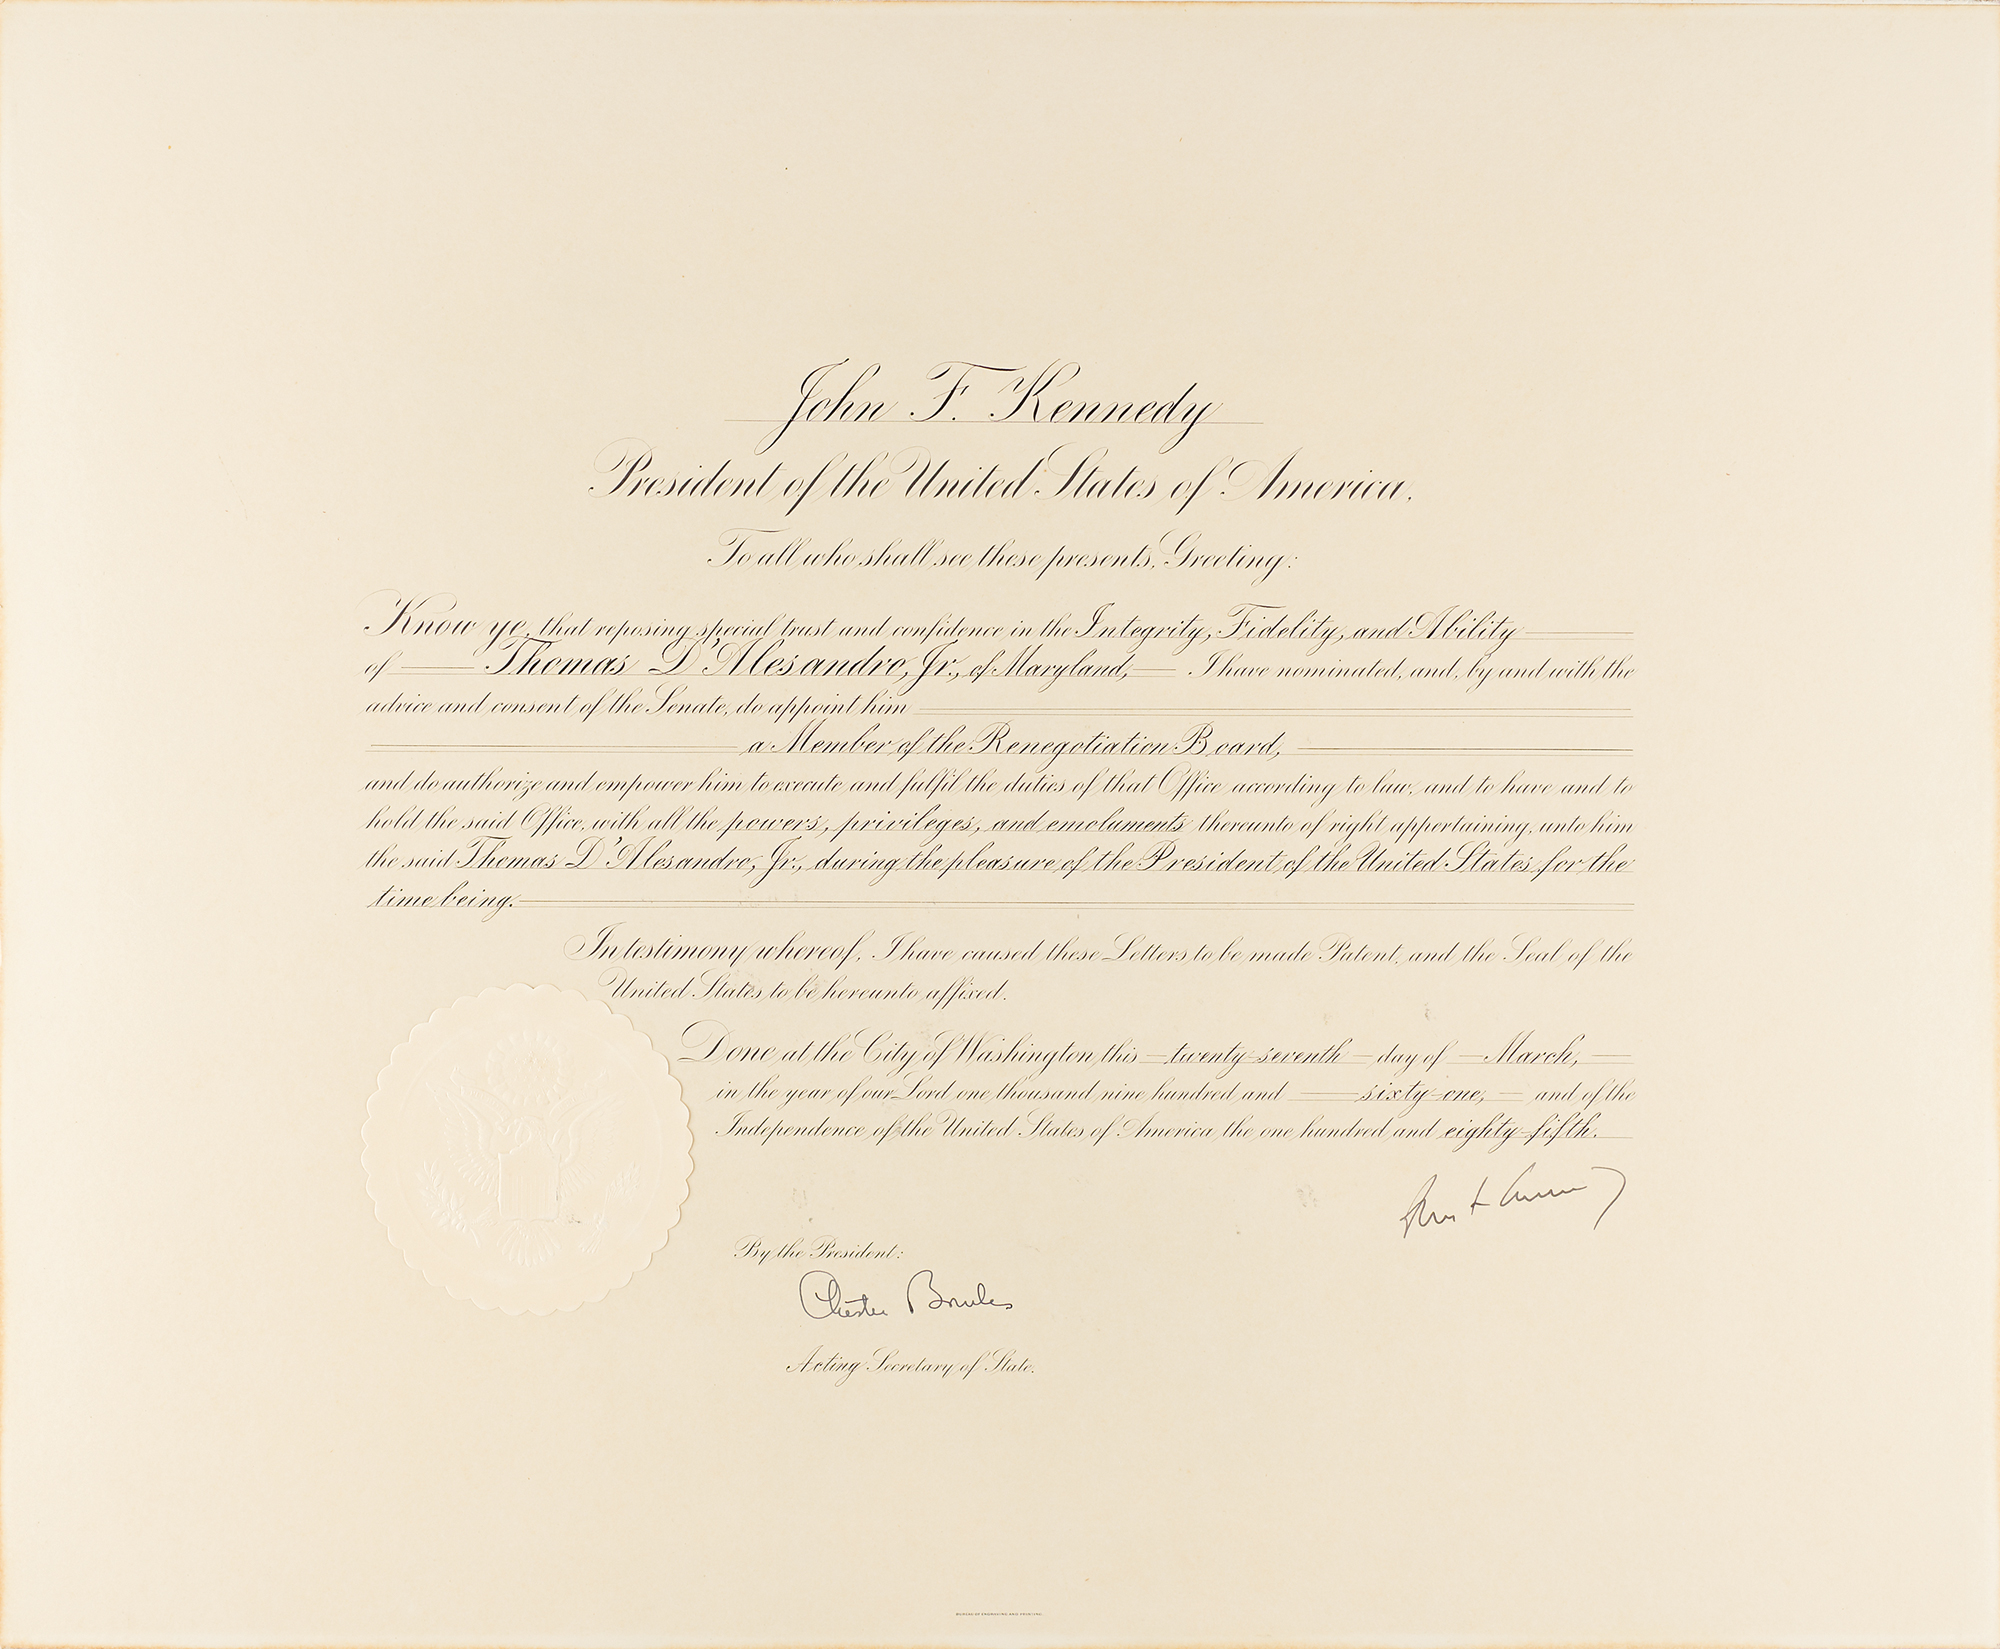 John F. Kennedy
President of the United States of America.
To all who shall see these presents, Greeting:
Know ye, that reposing special trust and confidence in the Integrity, Fidelity, and Ability
of Thomas D'Alesandro, Jr., of Maryland, I have nominated, and, by and with the
advice and consent of the Senate, do appoint him
a Member of the Renegotiation Board,
and do authorize and empower him to execute and fulfil the duties of that Office according to law, and to have and to
hold the said Office, with all the powers, privileges, and emoluments thereunto of right appertaining, unto him
the said Thomas D'Alesandro, Jr., during the pleasure of the President of the United States for the
time being.
In testimony whereof, I have caused these Letters to be made Patent, and the Seal of the
United States to be hereunto affixed.
Done at the City of Washington this twenty-seventh day of March,
in the year of our Lord one thousand nine hundred and sixty-one, and of the
Independence of the United States of America the one hundred and eighty-fifth.
John F Kennedy
By the President:
Chester Bowles
Acting Secretary of State.
BUREAU OF ENGRAVING AND PRINTING